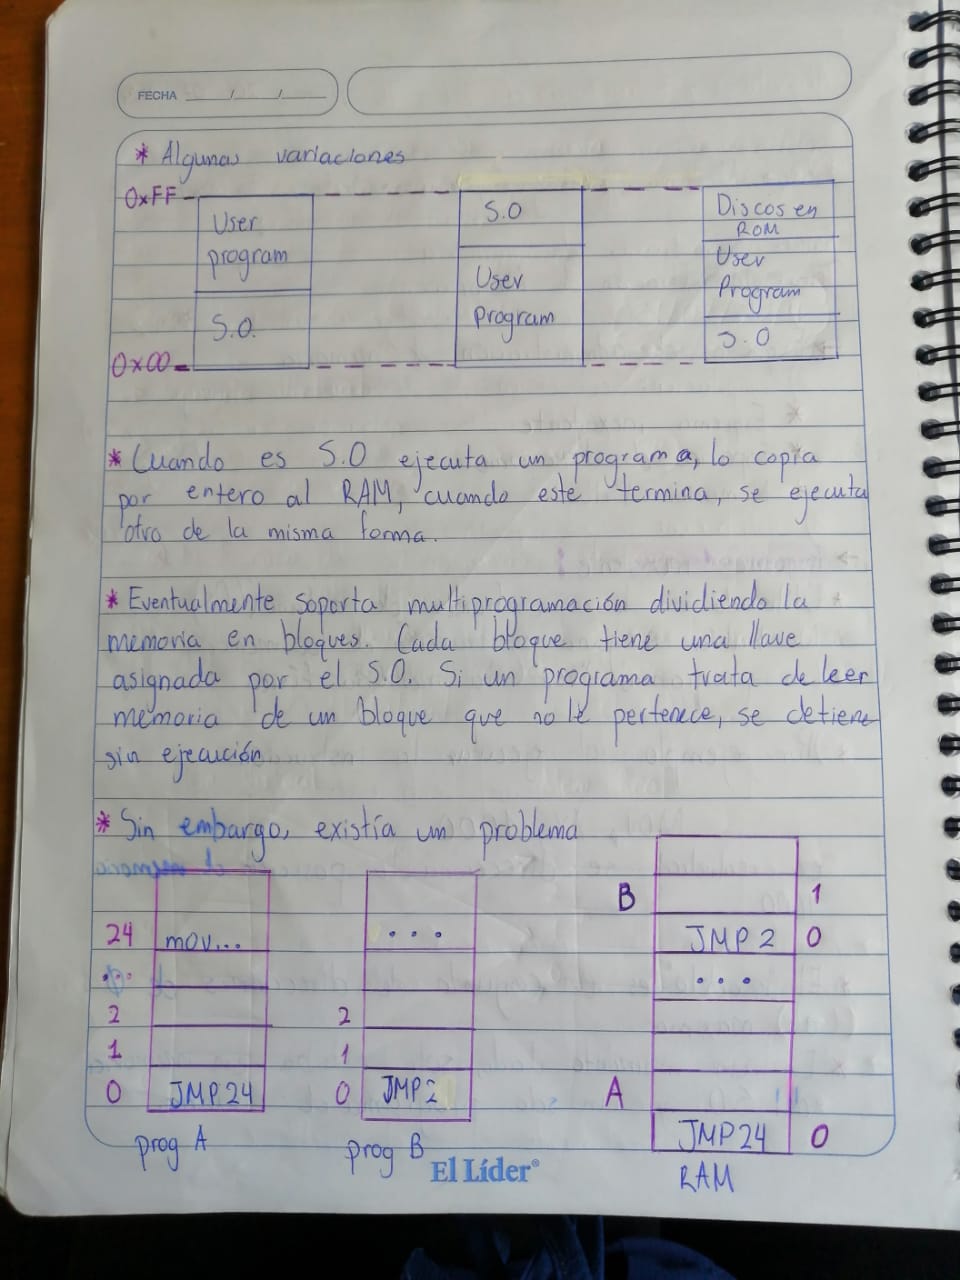 FECHA ____/____/____
* Algunas variaciones
0xFF
User
program
S.O.
0x00
S.O
User
Program
Discos en
ROM
User
Program
S.O
* Cuando es S.O ejecuta un programa, lo copia
por entero al RAM, cuando este termina, se ejecuta
otro de la misma forma.
* Eventualmente soporta multiprogramación dividiendo la
memoria en bloques. Cada bloque tiene una llave
asignada por el S.O. Si un programa trata de leer
memoria de un bloque que no le pertenece, se detiene
sin ejecución
* Sin embargo, existía un problema
24 mov...
...
2
1
0 JMP 24
prog A
...
2
1
0 JMP 2
prog B
B 1
JMP 2 0
...
A
JMP 24 0
RAM
El Líder®